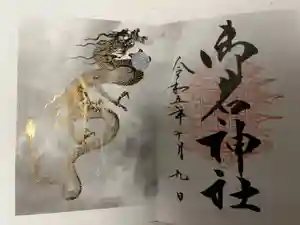 御岩神社
令和五年十月九日